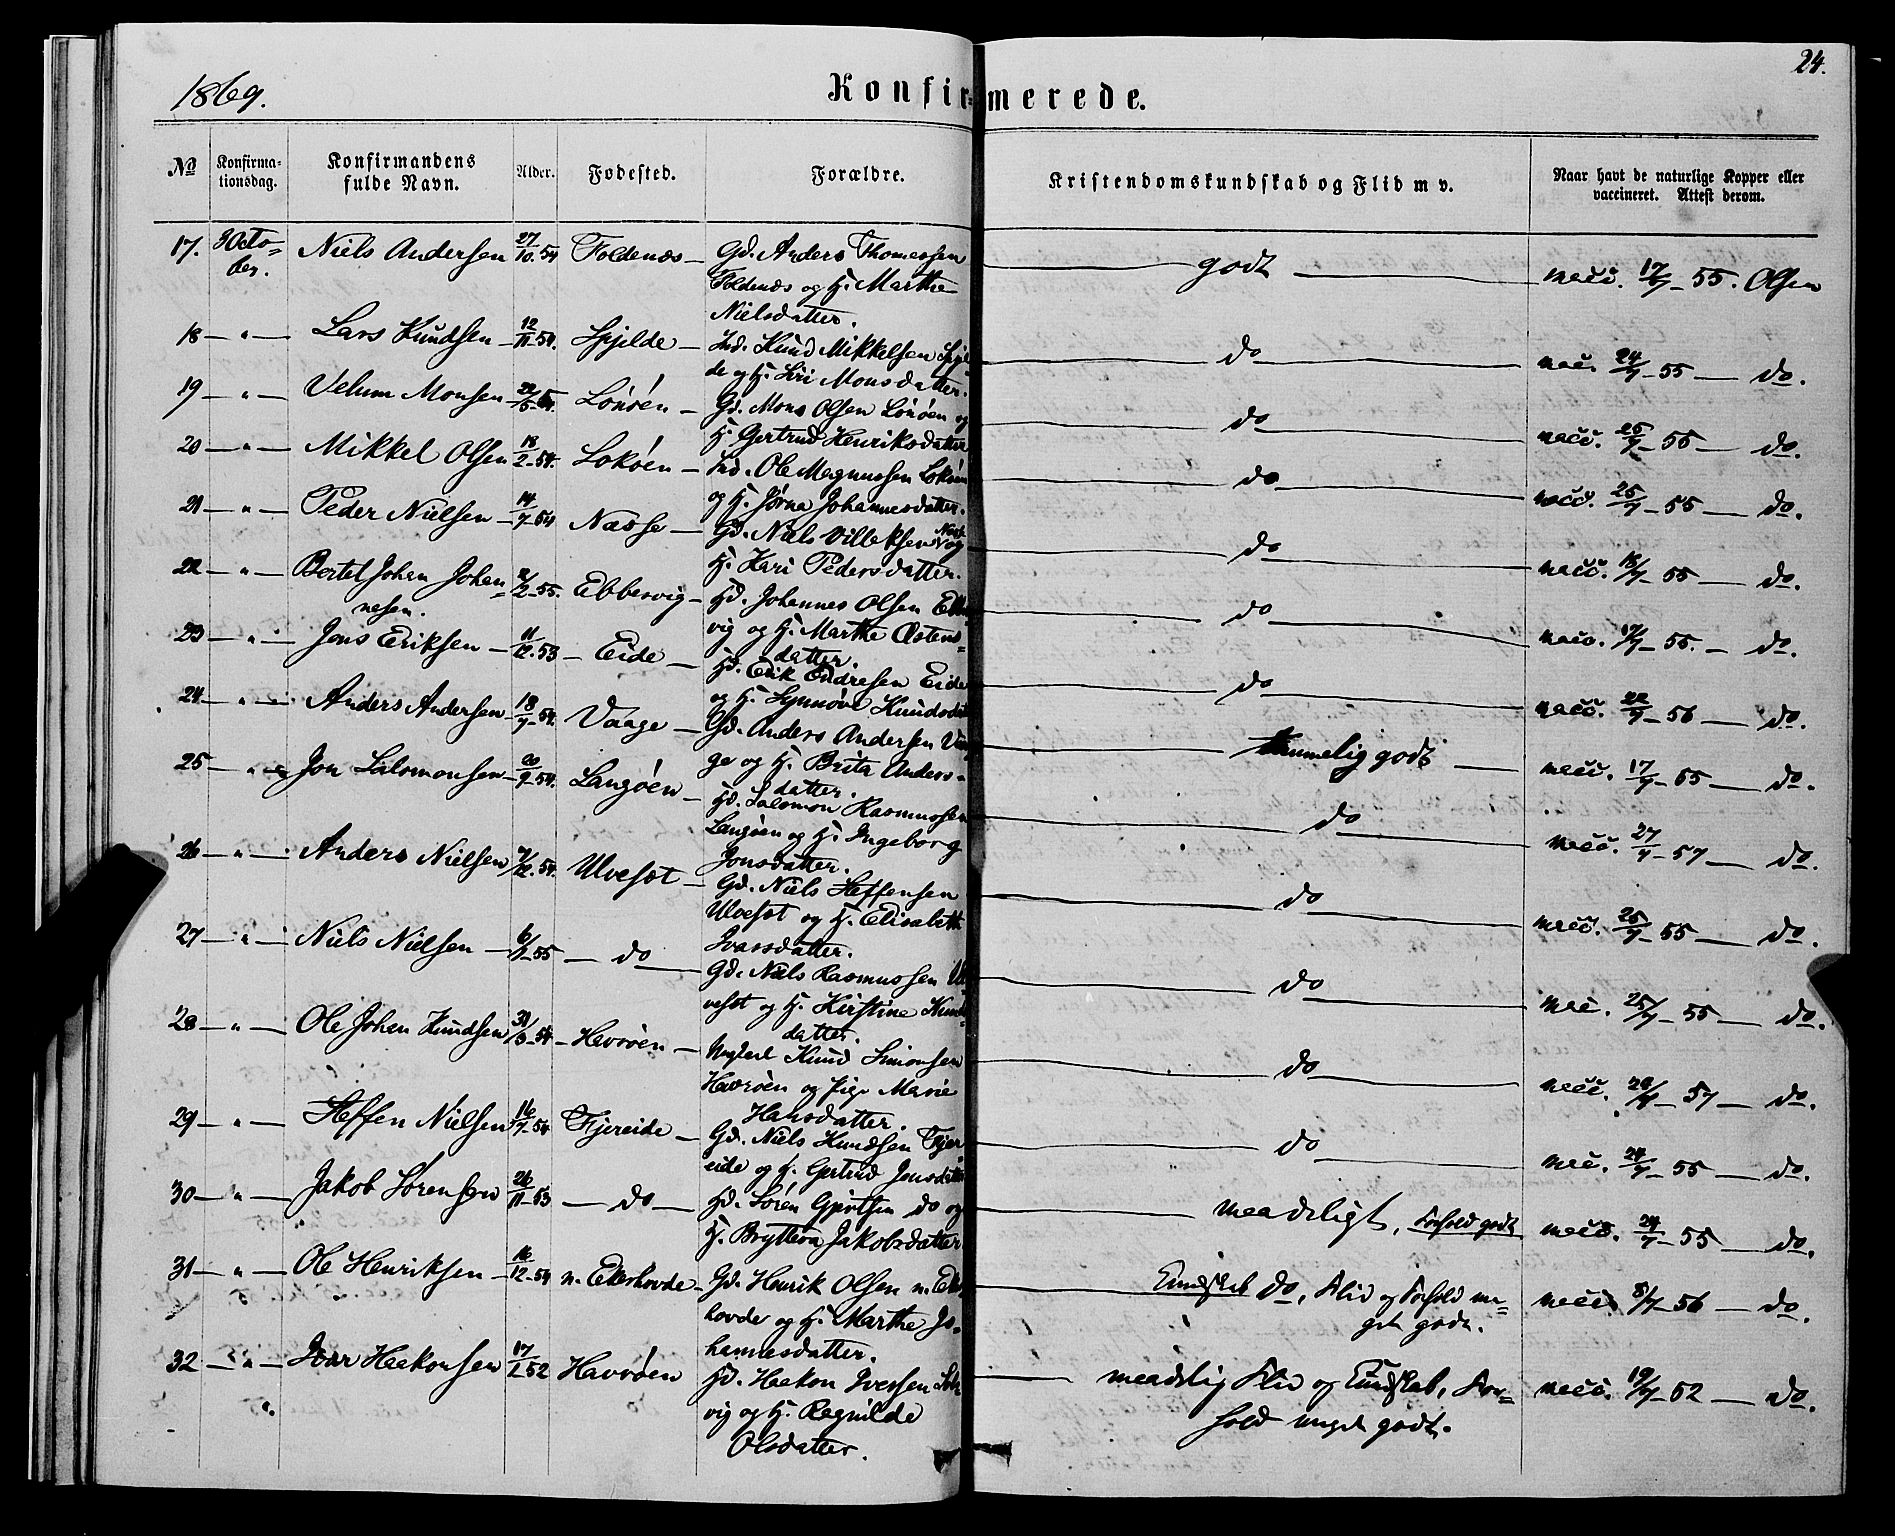 24.
1869.
Konfirmerede.
№ Konfirmationsdag. Konfirmandens fulde Navn. Alder. Fødested. Forældre. Kristendomskundskab og Flid m v. Naar havt de naturlige Kopper eller vaccineret. Attest derom.
17. 3 Octo- Niels Andersen 27/10.54 Foldenæs Gd. Anders Thomessen godt vacc. 17/7-55. Olsen
ber. Foldenæs og H. Marthe
Nielsdatter.
18 " Lars Knudsen 12/11-54. Spjelde Ind. Knud Mikkelsen Spjel- do vac. 24/7-55 do.
de og H. Siri Monsdatter.
19 " Velum Monsen Lönöen Gd. Mons Olsen Lönöen og do vacc. 25/7-55 do.
H. Gertrud Henriksdatter
20 " Mikkel Olsen 18/2-54. Lokøen Ind. Ole Magnussen Lokøen do vacc. 25/7-55 do.
og H. Jørna Johannesdatter.
21 " Peder Nielsen 14/7-54 Næsse Gd. Niels Villeksen Næsse og do vacc. 18/7-55 do.
H. Kari Pedersdatter.
22 " Bertel Johan Johan- 2/2-55. Ebbesvig Hd. Johannes Olsen Ebbes- do vacc. 17/7-55. do.
nesen. vig og H. Marthe Østens-
datter.
23 " Jens Eriksen 11/12.53 Eide Hd. Erik Endresen Eide do vacc. 22/9-56 do.
og H. Synnøve Knudsdat
24 " Anders Andersen 18/7-54. Vaage Gd. Anders Andersen Vaa- temmelig godt vacc. 17/7-55 do.
ge og H. Brita Anders-
datter.
25 " Jon Salomonsen 20/9-54. Langøen Hd. Salomon Rasmussen do vacc. 27/7-57 do.
Langøen og H. Ingeborg
Jonsdatter.
26 " Anders Nielsen 7/12.54. Ulvesæt Gd. Niels Steffensen do vacc. 25/7-55 do.
Ulvesæt og H. Elisabeth
Ivarsdatter.
27 " Niels Nielsen do Gd. Niels Rasmussen Ul- do vac. 25/7-55 do.
vesæt og H. Kirstine Knuds
datter.
28 " Ole Johan Knudsen Havrøen Ungkarl Knud Simonsen do vacc. do.
Havrøen og Pige Marie
Hansdatter.
29 " Steffen Nielsen 16/7-54 Fjereide Gd. Niels Knudsen Fjer- do vac. 24/7-55 do.
eide og H. Gertrud Jonsdatter
30 " Jakob Sørensen 26/11-53 do Hd. Søren Gjertsen do og maadeligt, Forhold godt vacc. 24/7-55 do.
H. Bryttera Jakobsdatter
31 " Ole Henriksen 16/12-54 n. Ekerhovde Gd. Henrik Olsen n. Eker- Kundskab do, Flid og Forhold me- vacc. 8/7-56 do.
hovde og H. Marthe Jo- get godt.
hannesdatter.
32 " Ivar Haakonsen 17/1-52 Havrøen Hd. Haakon Iversen maadelig Flid og Kundskab, For- vacc. 19/7-52 do.
vig og H. Ragnilde hold meget godt.
Olsdatter.